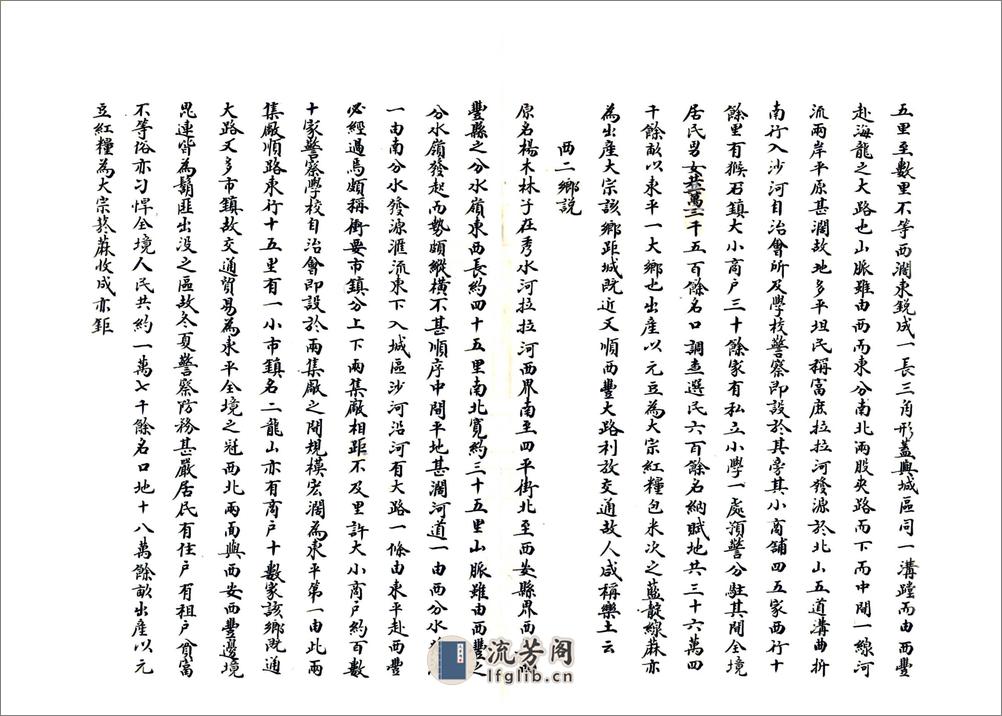 五里至數里不等西濶東銳成一長三角形蓋與城區同一溝蹚而由西豐
赴海龍之大路也山脈雖由西而東分南北兩股夾路而下而中間一線河
流兩岸平原甚濶故地多平坦民稱富庶拉拉河發源於北山五道溝曲折
南行入沙河自治會所及學校警察即設於其旁其小商舖四五家西行十
餘里有猴石鎮大小商戶三十餘家有私立小學一處預警分駐其間全境
居民男女萬三千五百餘名口調查選民六百餘名納賦地共三十六萬四
千餘畝以東平一大鄉也出產以元豆為大宗紅糧包米次之藍靛線麻亦
為出產大宗該鄉距城既近又順西豐大路利於交通故人咸稱樂土云
西二鄉說
原名楊木林子在秀水河拉拉河西界南至四平街北至西安縣界西
豐縣之分水嶺東西長約四十五里南北寬約三十五里山脈雖由西豐之
分水嶺發起而勢頗縱橫不甚順序中間平地甚濶河道一由西分水
一由南分水發源滙流東下入城區沙河沿河有大路一條由東平赴西豐
必經過焉頗稱衝要市鎮分上下兩集廠相距不及里許大小商戶約百數
十家警察學校自治會即設於兩集廠之間規模宏濶為東平第一由此兩
集廠順路東行十五里有一小市鎮名二龍山亦有商戶十數家該鄉既通
大路又多市鎮故交通貿易為東平全境之冠西北兩面與西安西豐邊境
毘連皆為鬍匪出沒之區故冬夏警察防務甚嚴居民有住戶有租戶貧富
不等俗亦刁悍全境人民共約一萬七千餘名口地十八萬餘畝出產以元
立紅糧為大宗菸蔴收成亦鉅
流芳阁
lfglib.cn